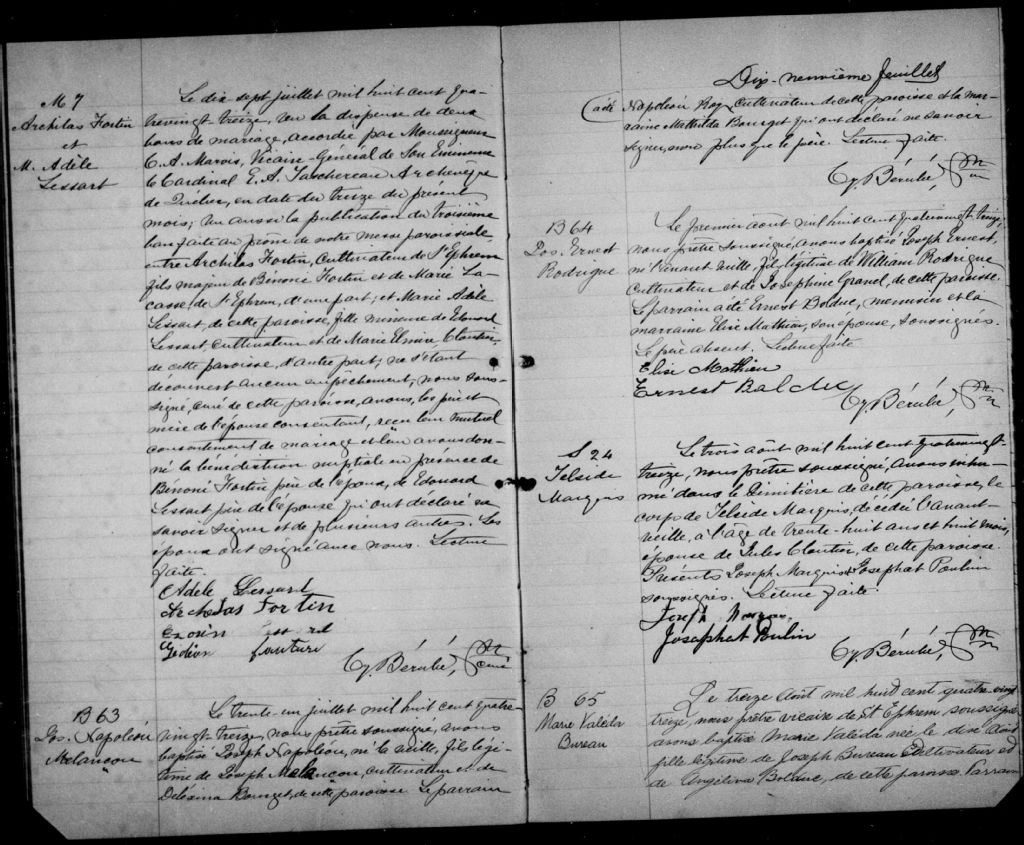 M 7
Archilas Fortin
et
M. Adèle
Lessart
Le dix sept juillet mil huit cent qua-
trevingt treize, vu la dispense de deux
bans de mariage, accordée par Monseigneur
C. A. Marois, Vicaire-Général de Son Eminence
le Cardinal E. A. Taschereau Archevêque
de Québec, en date du treize du présent
mois; vu aussi la publication du troisième
ban faite au prône de notre messe paroissiale
entre Archilas Fortin, cultivateur de St Ephrem
fils majeur de Bénoni Fortin et de Marie La-
casse, de St Ephrem, d'une part; et Marie Adèle
Lessart, de cette paroisse, fille mineure de Edouard
Lessart, cultivateur et de Marie Elmire Cloutier,
de cette paroisse, d'autre part; ne s'étant
découvert aucun empêchement, nous sous-
signé, curé de cette paroisse, avons, les père et
mère de l'épouse consentant, reçu leur mutuel
consentement de mariage et leur avons don-
né la bénédiction nuptiale en présence de
Bénoni Fortin père de l'époux, de Edouard
Lessart père de l'épouse qui ont déclaré ne
savoir signer et de plusieurs autres. Les
époux ont signé avec nous. Lecture
faite.
Adèle Lessard
Archelas Fortin
Gédéon
Cy. Bérubé, Ptre
curé
B 63
Jos. Napoléon
Melançon
Le trente-un juillet mil huit cent quatre-
vingt treize, nous prêtre soussigné, avons
baptisé Joseph Napoléon, né la veille, fils légi-
time de Joseph Melançon, cultivateur et de
Delesina Bourget, de cette paroisse. Le parrain
Dix-neuvième feuillet
(a été Napoléon Roy, cultivateur de cette paroisse et la mar-
raine Mathilda Bourget qui ont déclaré ne savoir
signer, non plus que le père. Lecture faite.
Cy. Bérubé, Ptre
B 64
Jos. Ernest
Rodrigue
Le premier août mil huit cent quatrevingt treize,
nous prêtre soussigné, avons baptisé Joseph Ernest,
né l'avant veille, fils légitime de William Rodrigue
cultivateur et de Josephine Gravel, de cette paroisse.
Le parrain a été Ernest Bolduc, menuisier et la
marraine Elise Mathieu, son épouse, soussignés.
Le père absent. Lecture faite
Elise Mathieu
Ernest Balduc
Cy. Bérubé, Ptre
S 24
Telside
Marquis
Le trois août mil huit cent quatrevingt-
treize, nous prêtre soussigné, avons inhu-
mé dans le Cimitière de cette paroisse, le
corps de Telside Marquis, décédée l'avant-
veille, à l'âge de trente-huit ans et huit mois,
épouse de Jules Cloutier, de cette paroisse.
Présents Joseph Marquis & Josephat Poulin
soussignés. Lecture faite.
Josaphat Poulin
Cy. Bérubé, Ptre
B 65
Marie Valéda
Bureau
Le treize Août mil huit cent quatre-vingt
treize, nous prêtre vicaire de St Ephrem soussigné
avons baptisé Marie Valéda née le dix Août
fille légitime de Joseph Bureau Cultivateur et
de Angélina Bolduc, de cette paroisse. Parrain